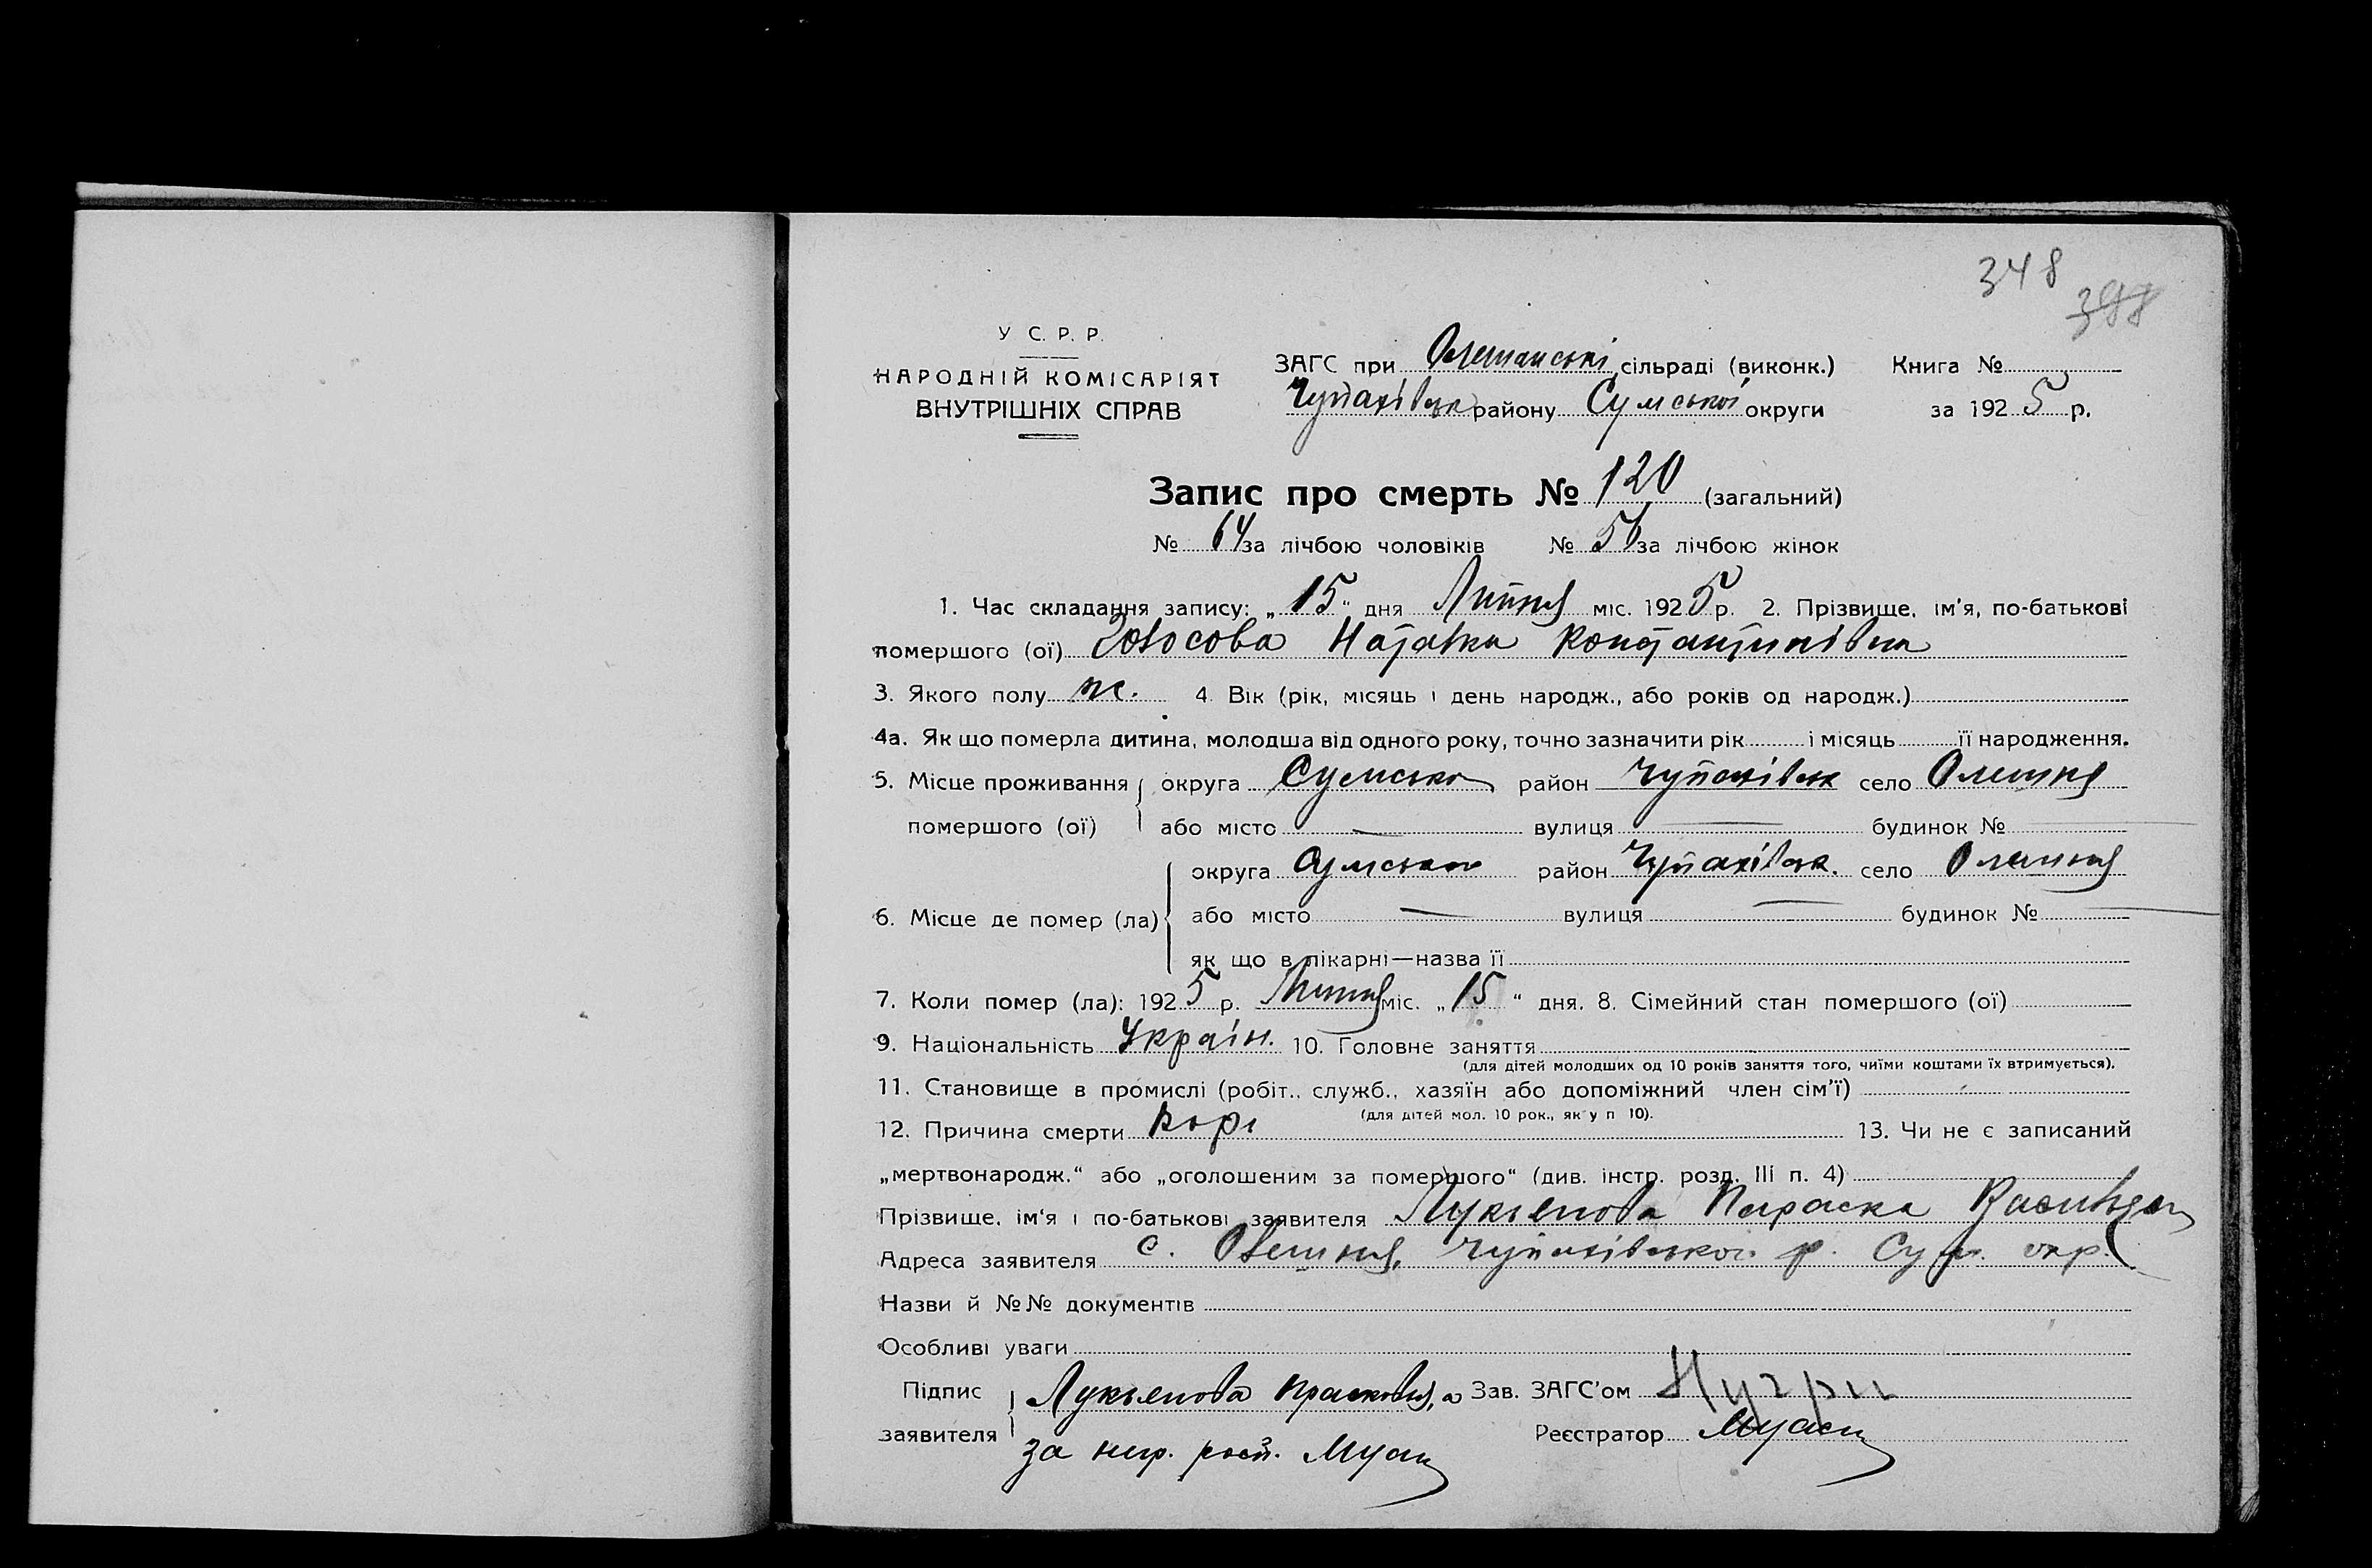 348
398
У С. Р. Р.
НАРОДНІЙ КОМІСАРІЯТ
ВНУТРІШНІХ СПРАВ
ЗАГС при Олешанські сільраді (виконк.) Книга №
Чупахівськ району Сумської округи за 1925 р.
Запис про смерть № 120 (загальний)
№ 64 за лічбою чоловіків № 56 за лічбою жінок
1. Час складання запису: „15" дня Липня міс. 1925 р. 2. Прізвище, ім'я, по-батькові
помершого (ої) Наталка Константинівна
3. Якого полу ж. 4. Вік (рік, місяць і день народж., або років од народж.)
4а. Як що померла дитина, молодша від одного року, точно зазначити рік і місяць її народження.
5. Місце проживання округа Сумська район Чупахівськ село Олешня
помершого (ої) або місто — вулиця — будинок № —
округа Сумська район Чупахівськ. село Олешня
6. Місце де помер (ла) або місто — вулиця — будинок № —
як що в лікарні—назва її
7. Коли помер (ла): 1925 р. Липня міс. „15" дня. 8. Сімейний стан помершого (ої)
9. Національність Україн. 10. Головне заняття
(для дітей молодших од 10 років заняття того, чиїми коштами їх втримується).
11. Становище в промислі (робіт., служб., хазяїн або допоміжний член сім'ї)
(для дітей мол. 10 рок., як у п 10).
12. Причина смерти Корь 13. Чи не є записаний
„мертвонародж." або „оголошеним за помершого" (див. інстр. розд. III п. 4)
Прізвище, ім'я і по-батькові заявителя Лукьянова Параска
Адреса заявителя с. Олешня, Чупахівської р. Сум. окр.
Назви й №№ документів
Особливі уваги
Підпис Лукьянова Зав. ЗАГС'ом
заявителя за Реєстратор